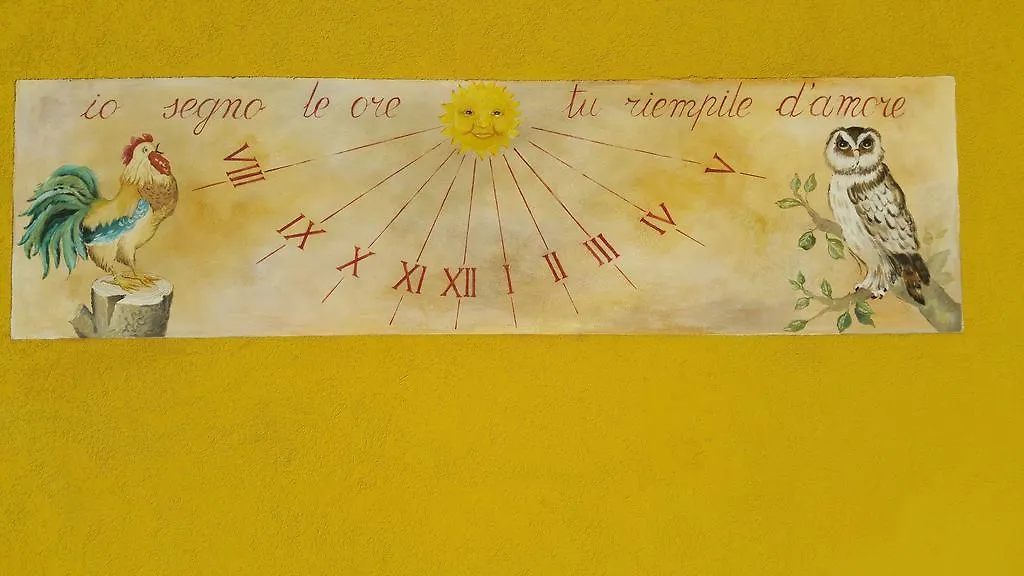 io segno le ore tu riempile d'amore
VIII IX X XI XII I II III IV V